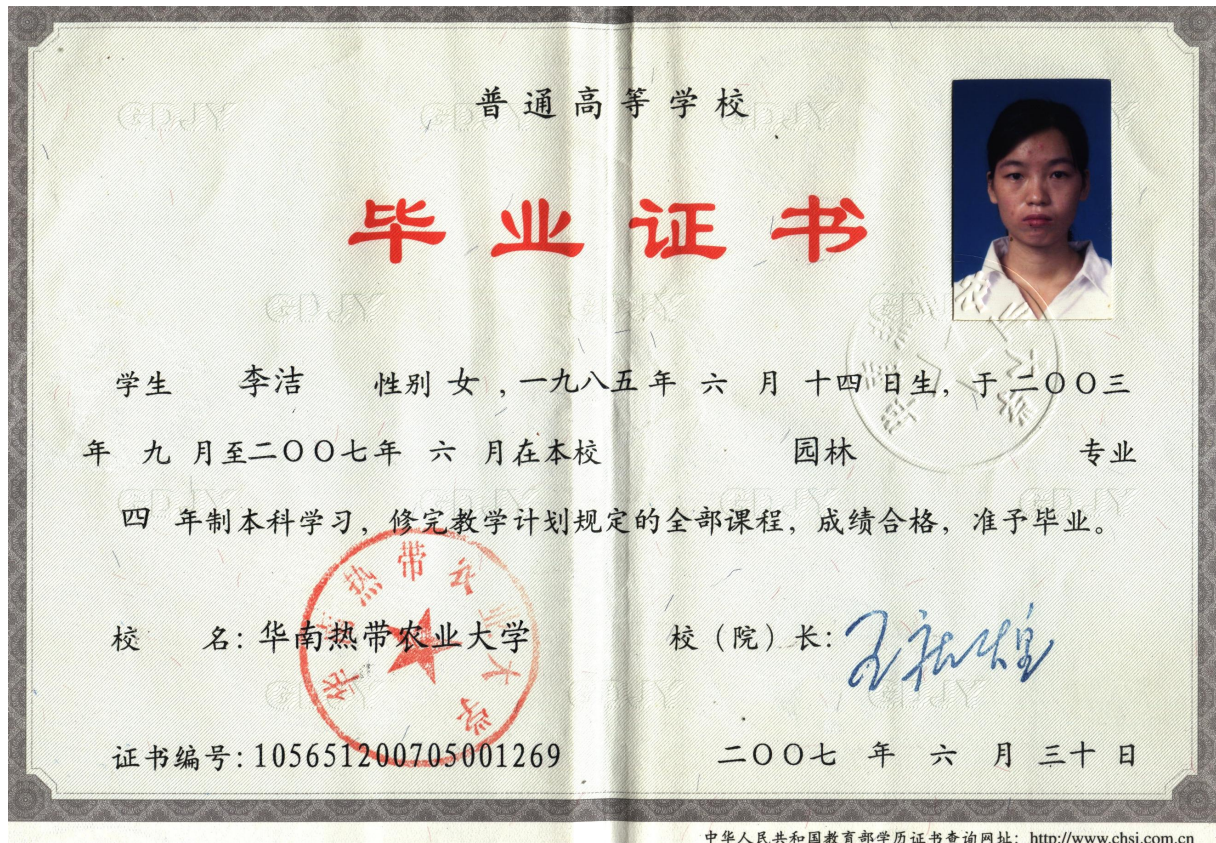 普通高等学校
毕业证书
学生 李洁 性别 女 ，一九八五年 六 月 十四 日生，于二〇〇三
年 九 月至二〇〇七年 六 月在本校 园林 专业
四 年制本科学习，修完教学计划规定的全部课程，成绩合格，准予毕业。
校 名：华南热带农业大学 校（院）长：
华南热带农业大学
证书编号：105651200705001269 二〇〇七 年 六 月 三十 日
中华人民共和国教育部学历证书查询网址：http://www.chsi.com.cn
GDJY